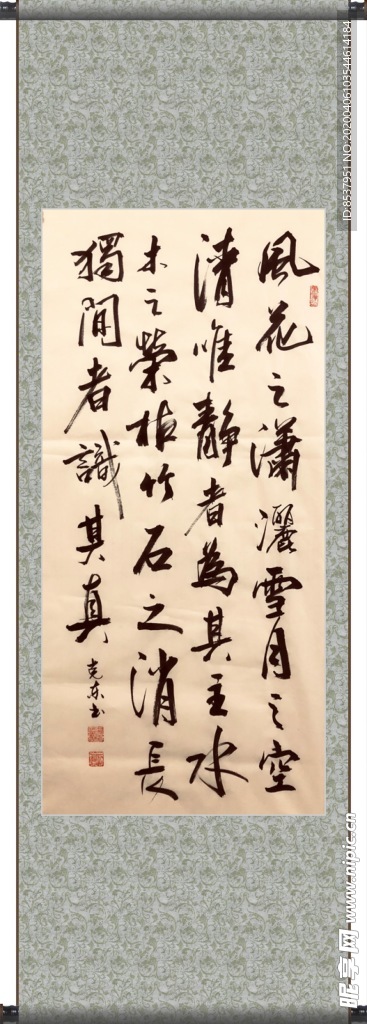 風花之瀟灑雪月之空
清唯靜者為其主水
木之榮枯竹石之消長
獨閒者識其真
克東书
ID:8537951 NO:20200406103544614184
昵享网 www.nipic.cn